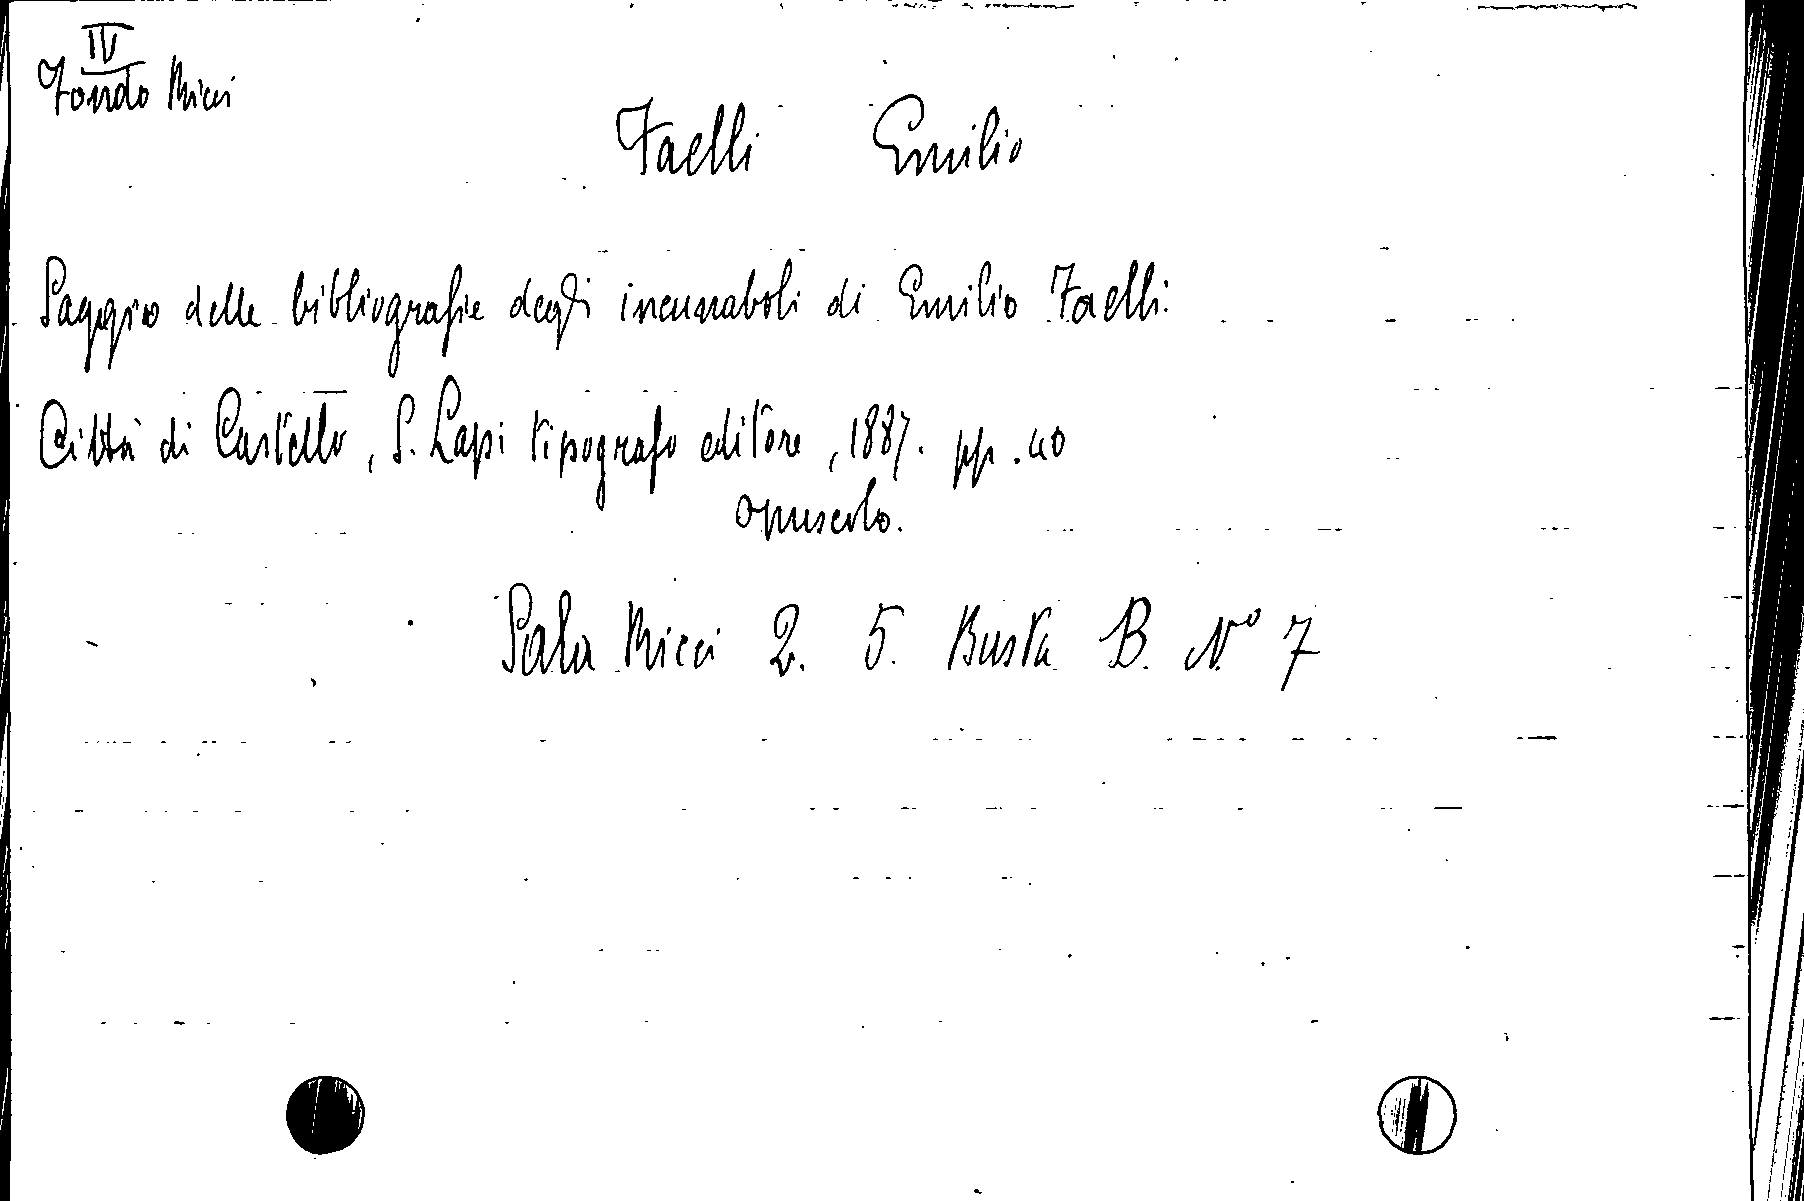 IV
Fondo Ricci
Faelli Emilio
Saggio delle bibliografie degli incunaboli di Emilio Faelli.
Città di Castello, S. Lapi tipografo editore, 1887. pp. 40
opuscolo.
Sala Ricci 2. 5. Busta B. N° 7